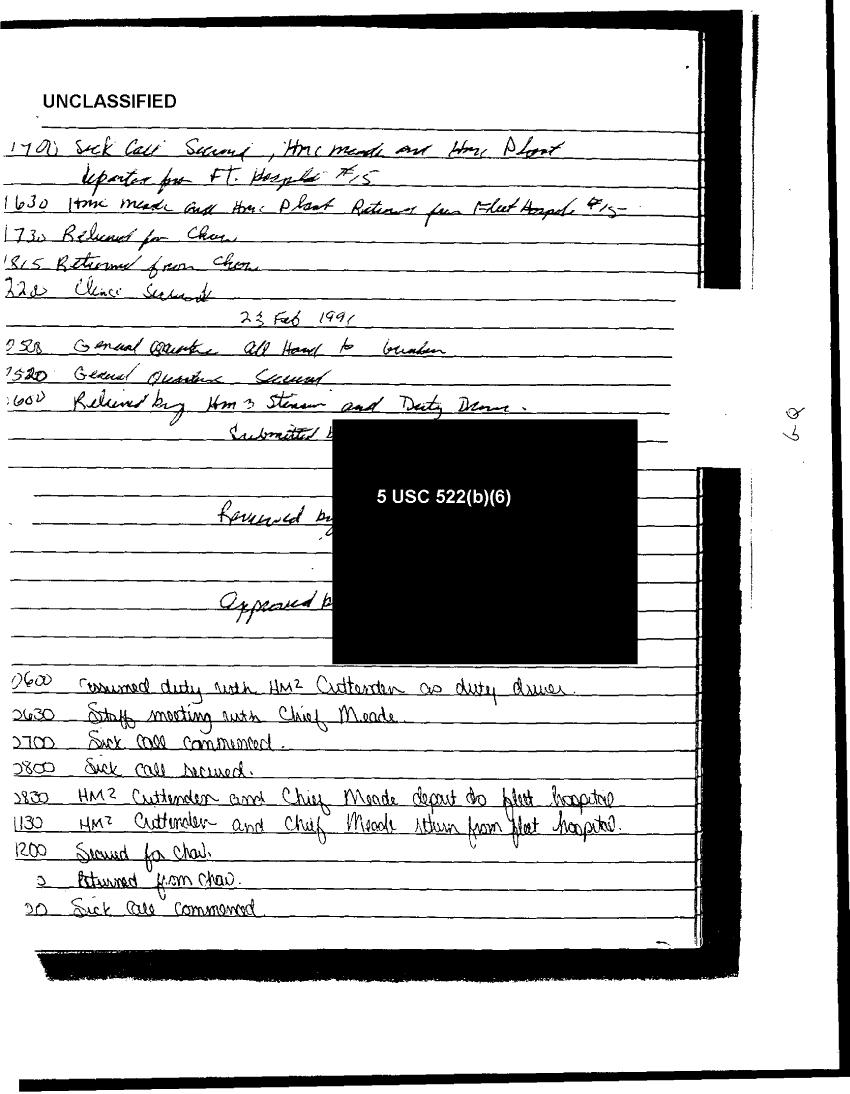 UNCLASSIFIED
1700 Sick Call Secured, Hmc meade and Hmc Plant
departed for FT. Hospital #15
1630 Hmc meade and Hmc Plant Returned from Fleet Hospital #15
1730 Relieved for Chow
1815 Returned from Chow
220 Clinic Secured
23 Feb 1991
General Quarters all Hand to bunker
0520 General Quarters Secured
0600 Relieved by Hm3 and Duty Driver.
Submitted b
5 USC 522(b)(6)
Reviewed by
Approved b
0600 assumed duty with HM2 Cuttenden as duty driver.
0630 Staff meeting with Chief Meade.
0700 Sick call commenced.
0800 Sick call secured.
0830 HM2 Cuttenden and Chief Meade depart to fleet hospital
1130 HM2 Cuttenden and Chief Meade return from fleet hospital.
1200 Secured for chow.
Returned from chow.
Sick call commenced